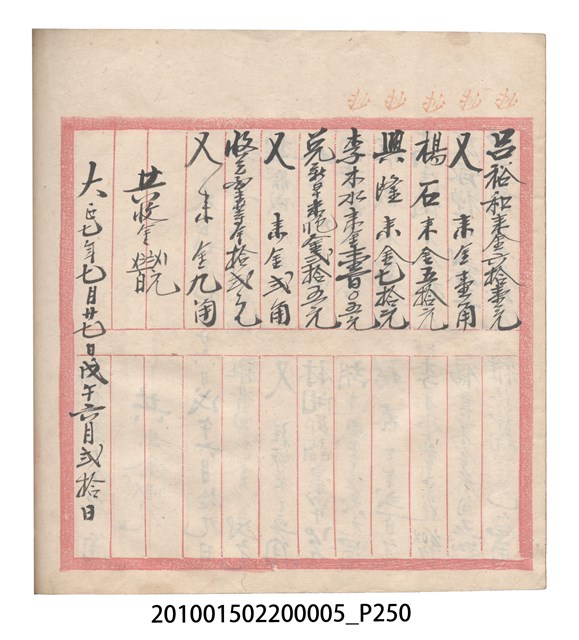 呂裕和來金六拾壹元
又 來金壹角
楊石木金五拾元
興隆來金七拾元
李木水來金壹百〇五元
兌新早來眖金弍拾五元
又 來金弍角
收 金拾弍元
又 來金九角
共收金
大正七年七月廿七日戊午六月弍拾日
201001502200005_P250